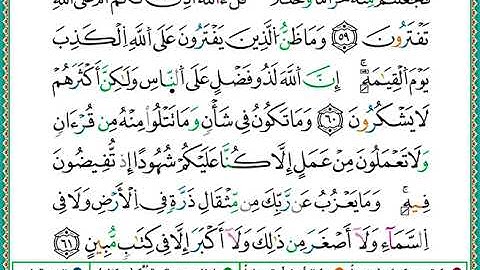 تَفْتَرُونَ ۝٥٩ وَمَا ظَنُّ الَّذِينَ يَفْتَرُونَ عَلَى اللَّهِ الْكَذِبَ
يَوْمَ الْقِيَامَةِ ۗ إِنَّ اللَّهَ لَذُو فَضْلٍ عَلَى النَّاسِ وَلَٰكِنَّ أَكْثَرَهُمْ
لَا يَشْكُرُونَ ۝٦٠ وَمَا تَكُونُ فِي شَأْنٍ وَمَا تَتْلُوا مِنْهُ مِن قُرْءَانٍ
وَلَا تَعْمَلُونَ مِنْ عَمَلٍ إِلَّا كُنَّا عَلَيْكُمْ شُهُودًا إِذْ تُفِيضُونَ
فِيهِ ۚ وَمَا يَعْزُبُ عَن رَّبِّكَ مِن مِّثْقَالِ ذَرَّةٍ فِي الْأَرْضِ وَلَا فِي
السَّمَاءِ وَلَا أَصْغَرَ مِن ذَٰلِكَ وَلَا أَكْبَرَ إِلَّا فِي كِتَابٍ مُّبِينٍ ۝٦١